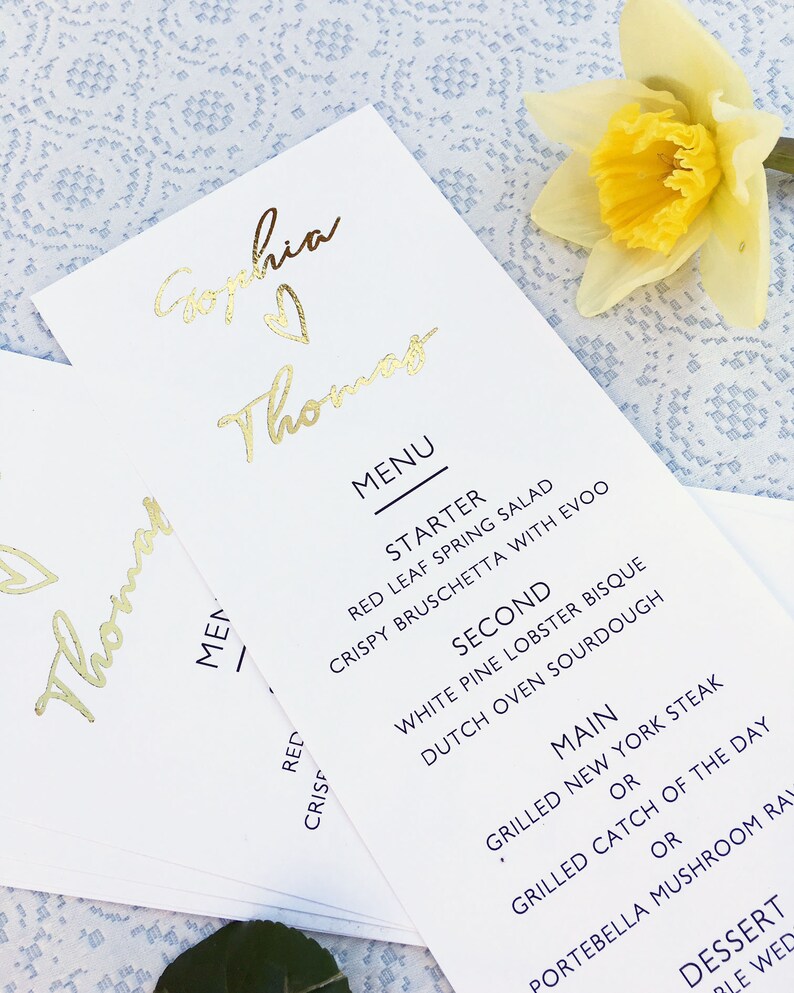 Sophia
Thomas
MENU
STARTER
RED LEAF SPRING SALAD
CRISPY BRUSCHETTA WITH EVOO
SECOND
WHITE PINE LOBSTER BISQUE
DUTCH OVEN SOURDOUGH
MAIN
GRILLED NEW YORK STEAK
OR
GRILLED CATCH OF THE DAY
OR
PORTEBELLA MUSHROOM RAV
DESSERT
Thomas
MEN
RED
CRISP